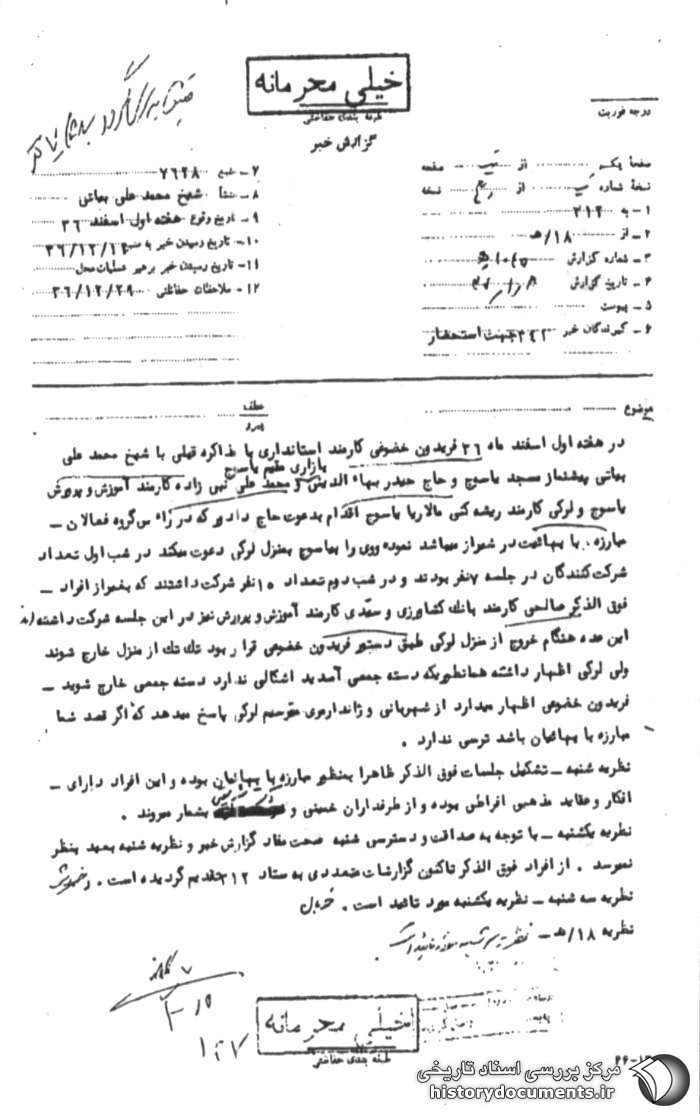 خیلی محرمانه
طبقه بندی حفاظتی
گزارش خبر
درجه فوریت
صفحه یکم از یک صفحه
نسخه شماره از نسخه
۱ـ به ۳۱۲
۲ـ از ۱۸/هـ
۳ـ شماره گزارش
۴ـ تاریخ گزارش
۵ـ پیوست
۶ـ گیرندگان خبر ۳۴۲ جهت استحضار
۷ـ منبع ۷۶۴۸
۸ـ منشأ شیخ محمد علی بهاتی
۹ـ تاریخ وقوع هفته اول اسفند ۳۶
۱۰ـ تاریخ رسیدن خبر به منبع
۱۱ـ تاریخ رسیدن خبر برهبر عملیات محل
۱۲ـ ملاحظات حفاظتی ۳۶/۱۲/۲۹
موضوع
عطف
پیرو
در هفته اول اسفند ماه ۳۶ فریدون خضوعی کارمند استانداری با مذاکره قبلی با شیخ محمد علی
بازاری مقیم یاسوج
بهاتی پیشنماز مسجد یاسوج و حاج حیدر بهاء الدینی و محمد علی نبی زاده کارمند آموزش و پرورش
یاسوج و لرکی کارمند ریشه کنی مالاریا یاسوج اقدام بدعوت حاج دادور که در راس گروه فعالان ـ
مبارزه با بهائیت در شیراز میباشد نموده ووی را بیاسوج بمنزل لرکی دعوت میکند در شب اول تعداد
شرکت کنندگان در جلسه ۷نفر بودند و در شب دوم تعداد ۱۰نفر شرکت داشتند که بغیراز افراد ـ
فوق الذکر صالحی کارمند بانک کشاورزی و سعدی کارمند آموزش و پرورش نیز در این جلسه شرکت داشته اند
این عده هنگام خروج از منزل لرکی طبق دستور فریدون خضوعی قرار بود تک تک از منزل خارج شوند
ولی لرکی اظهار داشته همانطوریکه دسته جمعی آمدید اشکالی ندارد دسته جمعی خارج شوید ـ
فریدون خضوعی اظهار میدارد از شهربانی و ژاندارمری میترسیم لرکی پاسخ میدهد که اگر قصد شما
مبارزه با بهائیان باشد ترسی ندارد .
نظریه شنبه ـ تشکیل جلسات فوق الذکر ظاهرا بمنظور مبارزه با بهائیان بوده و این افراد دارای ـ
افکار و عقاید مذهبی افراطی بوده و از طرفداران خمینی و بشمار میروند .
نظریه یکشنبه ـ با توجه به صداقت و دسترسی شنبه صحت مفاد گزارش خبر و نظریه شنبه بعید بنظر
نمیرسد . از افراد فوق الذکر تاکنون گزارشات متعددی به ستاد ۳۱۲ تقدیم گردیده است .
نظریه سه شنبه ـ نظریه یکشنبه مورد تائید است .
نظریه ۱۸/هـ ـ نظریه سه شنبه مورد تائید است
خیلی محرمانه
طبقه بندی حفاظتی
مرکز بررسی اسناد تاریخی
historydocuments.ir